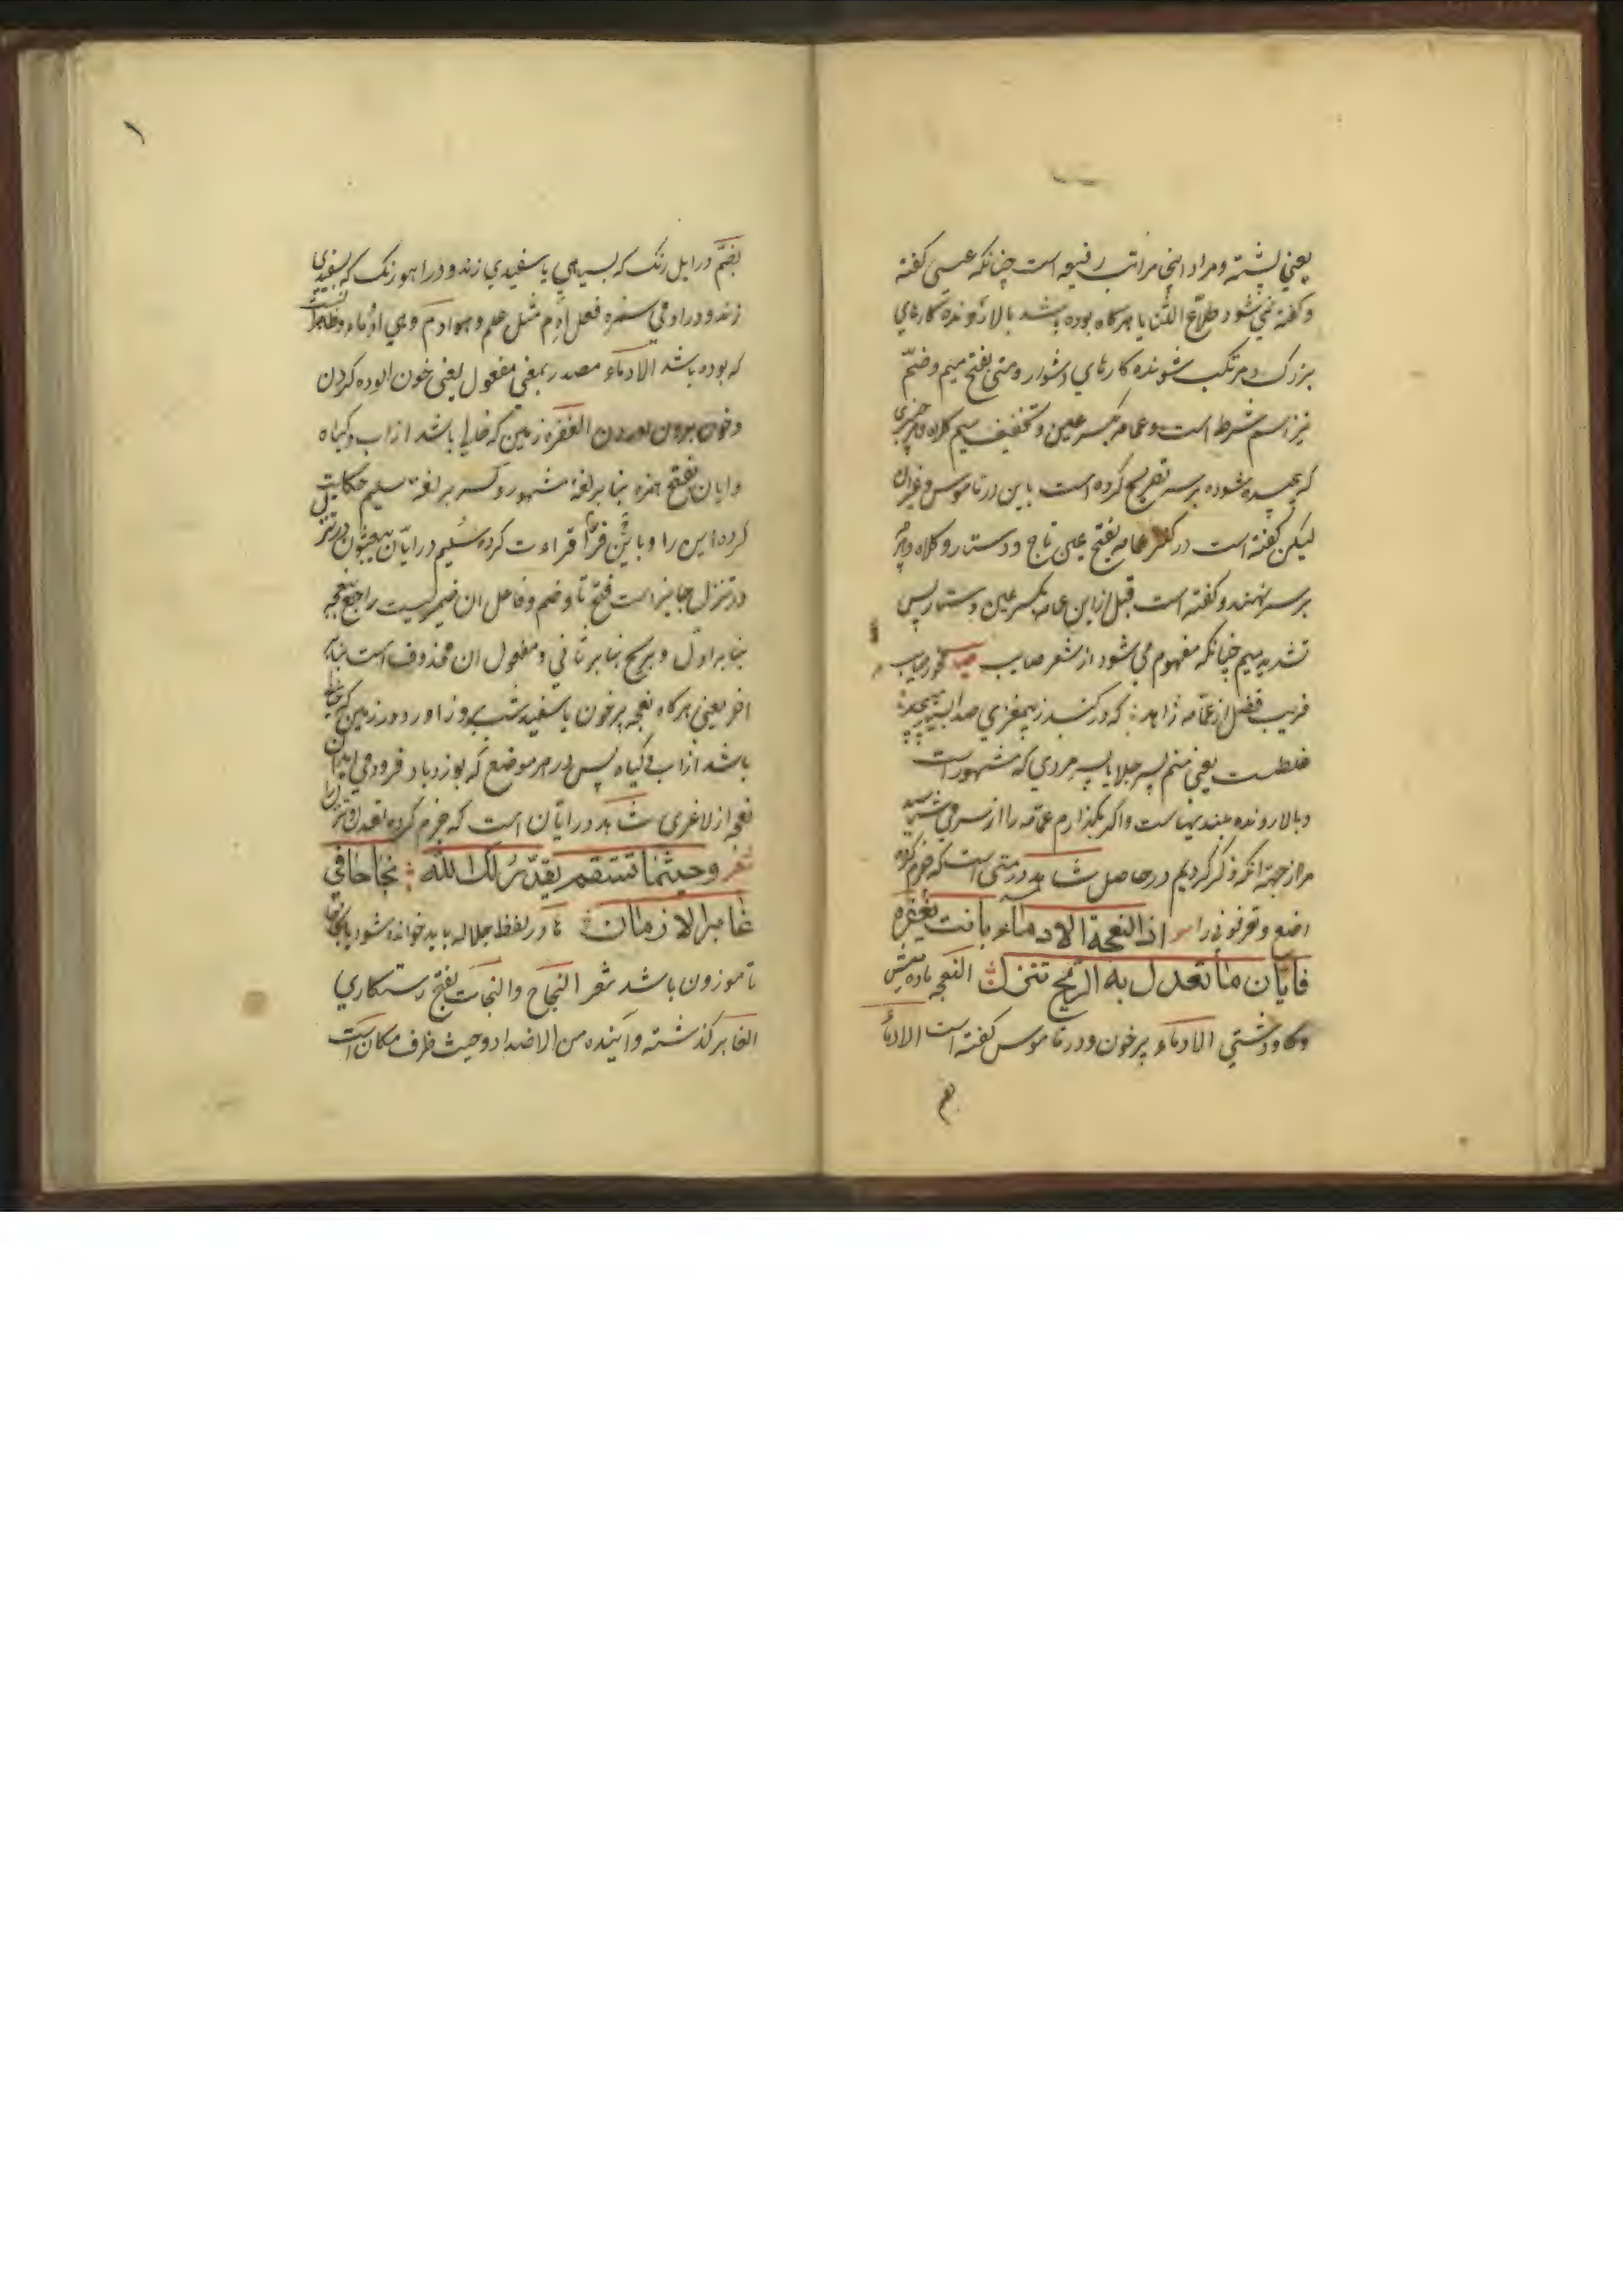 یعنی پشته و مراد اینجا مراتب رفیعه است چنانکه عیسی گفته
و گفته نمی شود طلاع الثنایا هرگاه بوده باشد بالا رونده کارهای
بزرگ و مرتکب شونده کارهای دشوار و متی بفتح میم و ضم
نیز اسم شرط است و عمامه بکسر عین و تخفیف میم کلاه و هر چیزی
که پیچیده شوده بر سر تصریح کرده است باین در قاموس و غیر ان
لیکن گفته است در کنز عمامه بفتح عین تاج و دستار و کلاه و هر چه
بر سر نهند و گفته است قبل از این عمامه بکسر عین دستار پس
تشدید میم چنانکه مفهوم می شود از شعر صایب
فریب فضل از عمامه زاهد که در گنبد ز بیمغزی صدا بسیار می پیچد
غلطست یعنی منم پسر جلا یا پسر مردی که مشهور است
و بالا رونده بلندیهاست و اگر بگذارم عمامه را از سر می شناسید
مرا از جهة انکه ذکر کردیم در حاصل شاهد در متی است که جزم کرده
اضع و تعرفونی را اذا النعجة الادماء باتت بقفرة
فایان ما تعدل به الریح تنزل النعجه ماده میش
و گاو دشتی الادماء پر خون و در قاموس گفته است الادماء
بضم
بضم در ابل رنگ که بسیاهی یا سفیدی زند و در اهو رنگ که بسفیدی
زند و در ادمی سمره فعل ادم مثل علم و هو ادم و هی ادماء
که بوده باشد الادماء مصدر بمعنی مفعول یعنی خون الوده کردن
و خون بیرون اوردن القفره زمین که خالی باشد از اب و گیاه
و ایان بفتح همزه بنا بر لغة مشهور و کسر بر لغة سلیم حکایت
کرده این را و باین فرا قراءت کرده سلیم در ایان یبعثون
در تنزل جایز است فتح تا و ضم و فاعل ان ضمیریست راجع بنعجه
بنا بر اول و بریح بنا بر ثانی و مفعول ان محذوف است بنا بر
اخر یعنی هرگاه نعجه پر خون یا سفید شب بروز اورد در زمین که خالی
باشد از اب و گیاه پس در هر موضع که بوزد باد فرود می اید ان
نعجه از لاغری شاهد در ایان است که جزم کرده تعدل و تنزل را
شعر وحیثما تستقم یقدر لک الله نجاحا فی
غابر الازمان تا در لفظ جلاله باید خوانده شود
تا موزون باشد شعر النجاح والنجات بفتح رستگاری
الغابر گذشته و اینده من الاضداد و حیث ظرف مکان است